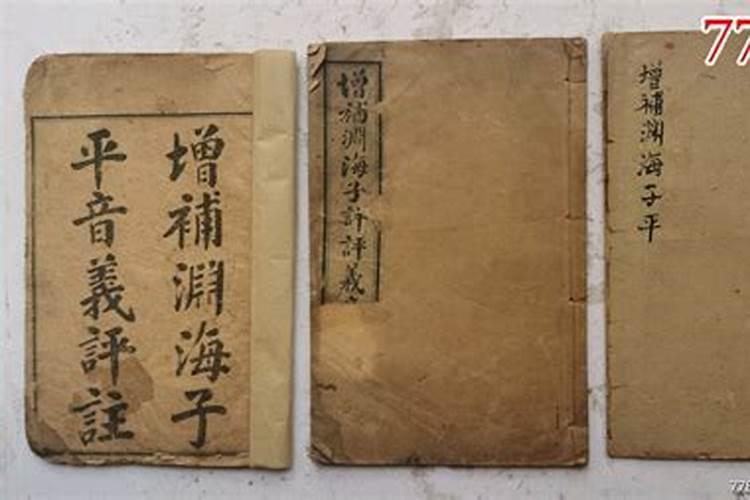 增補淵海子
平音義評註
增補淵海子評義
增補渊海子平
77
778